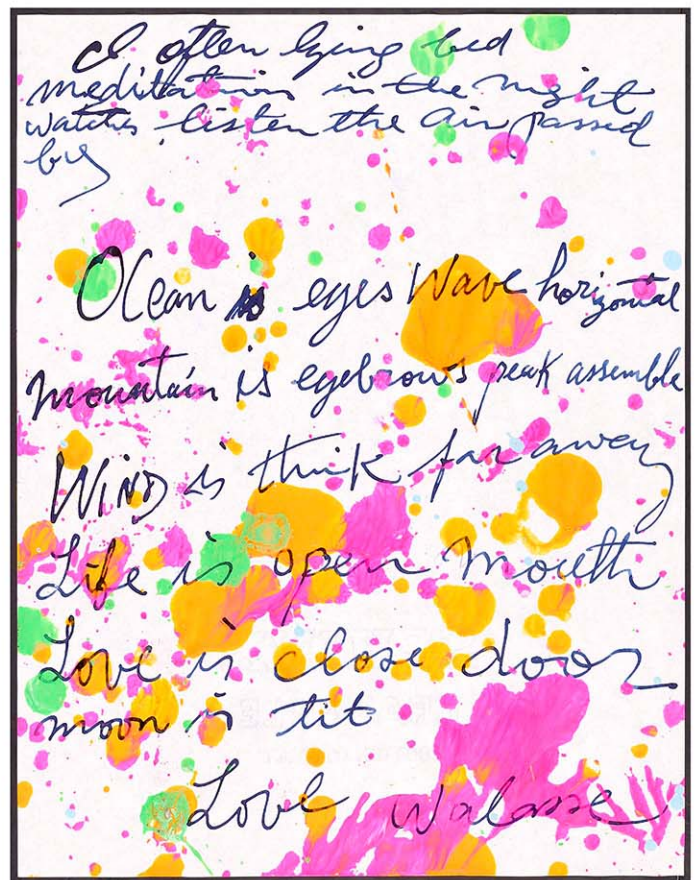 I often lying bed
meditation in the night
watches listen the air passed
by
Ocean is eyes Wave horizontal
mountain is eyebrows peak assemble
WIND is think far away
Life is open mouth
Love is close door
moon is tit
Love Walasse